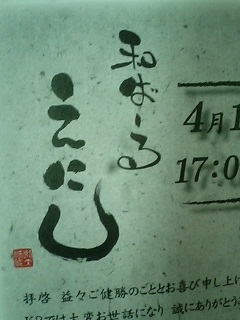 和ばーる
えにし
4月1
17:0
拝啓 益々ご健勝のこととお喜び申し上げ
では大変お世話になり 誠にありがとう